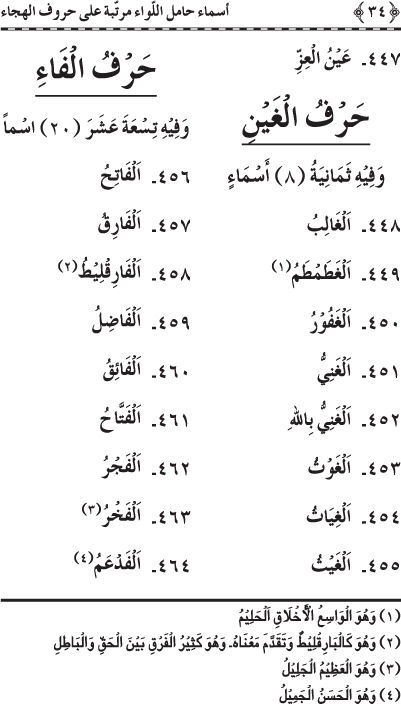 ﴿٣٤﴾ أسماء حامل اللّواء مرتّبة على حروف الهجاء
٤٤٧ـ عَيْنُ الْعِزِّ
حَرْفُ الْغَيْنِ
وَفِيْهِ ثَمَانِيَةُ (٨) أَسْمَاءٍ
٤٤٨ـ اَلْغَالِبُ
٤٤٩ـ اَلْغَطَمْطَمُ(١)
٤٥٠ـ اَلْغَفُوْرُ
٤٥١ـ اَلْغَنِيُّ
٤٥٢ـ اَلْغَنِيُّ بِاللهِ
٤٥٣ـ اَلْغَوْثُ
٤٥٤ـ اَلْغِيَاثُ
٤٥٥ـ اَلْغَيْثُ
حَرْفُ الْفَاءِ
وَفِيْهِ تِسْعَةَ عَشَرَ (٢٠) اسْماً
٤٥٦ـ اَلْفَاتِحُ
٤٥٧ـ اَلْفَارِقُ
٤٥٨ـ اَلْفَارِقْلِيْطُ(٢)
٤٥٩ـ اَلْفَاضِلُ
٤٦٠ـ اَلْفَائِقُ
٤٦١ـ اَلْفَتَّاحُ
٤٦٢ـ اَلْفَجْرُ
٤٦٣ـ اَلْفَخْرُ(٣)
٤٦٤ـ اَلْفَدْعَمُ(٤)
(١) وَهُوَ الْوَاسِعُ الْأَخْلَاقِ اَلْحَلِيْمُ
(٢) وَهُوَ كَالْبَارِقْلِيْطِ وَتَقَدَّمَ مَعْنَاهُ. وَهُوَ كَثِيْرُ الْفَرْقِ بَيْنَ الْحَقِّ وَالْبَاطِلِ
(٣) وَهُوَ الْعَظِيْمُ الْجَلِيْلُ
(٤) وَهُوَ الْحَسَنُ الْجَمِيْلُ